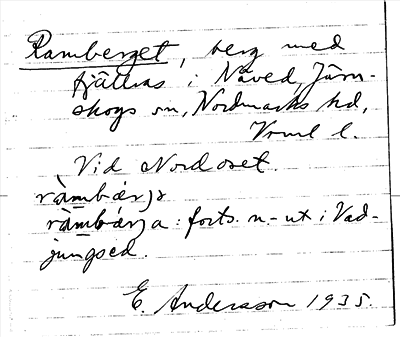 Ramberget, berg med
fjällras i Näved, Järn-
skogs sn, Nordmarks hd,
Vrml l.
Vid Nordoset.
ràmbǽrjə
ràmbǽrja: forts. n.-ut i Vad-
jungsed.
E. Andersson 1935.